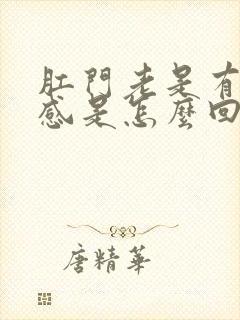 肛門老是有
感是怎麼回
唐精華